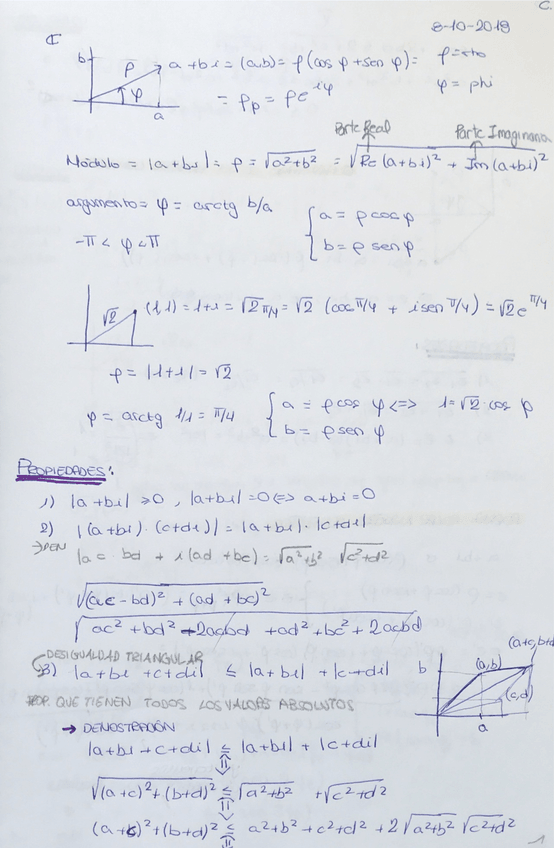 8-10-2019
ℂ
b ρ a+bi = (a,b) = ρ(cos φ + sen φ) = ρ = rho
φ = ρ_φ = ρe^iφ φ = phi
a
Parte Real Parte Imaginaria
Módulo = |a+bi| = ρ = √(a²+b²) = √(Re(a+bi)² + Im(a+bi)²)
argumento = φ = arctg b/a { a = ρ cos φ
-π < φ < π b = ρ sen φ
√2 (1,1) = 1+i = √2 π/4 = √2 (cos π/4 + i sen π/4) = √2 e^π/4
ρ = |1+i| = √2
φ = arctg 1/1 = π/4 { a = ρ cos φ <=> 1 = √2 · cos φ
b = ρ sen φ
PROPIEDADES:
1) |a+bi| ≥ 0, |a+bi| = 0 <=> a+bi = 0
2) |(a+bi)·(c+di)| = |a+bi|·|c+di|
→ DEM |ac - bd + i(ad+bc) = √(a²+b²) √(c²+d²)
√((ac-bd)² + (ad+bc)²)
√(ac²+bd² - 2acbd + ad² + bc² + 2acbd
DESIGUALDAD TRIANGULAR (a+c,b+d)
3) |a+bi + c+di| ≤ |a+bi| + |c+di| b (a,b)
PROP. QUE TIENEN TODOS LOS VALORES ABSOLUTOS (c,d)
→ DEMOSTRACIÓN a
|a+bi+c+di| ≤ |a+bi| + |c+di|
⇕
√((a+c)²+(b+d)²) ≤ √(a²+b²) + √(c²+d²)
⇕
(a+c)²+(b+d)² ≤ a²+b²+c²+d²+2√(a²+b²) √(c²+d²)
⇕
1